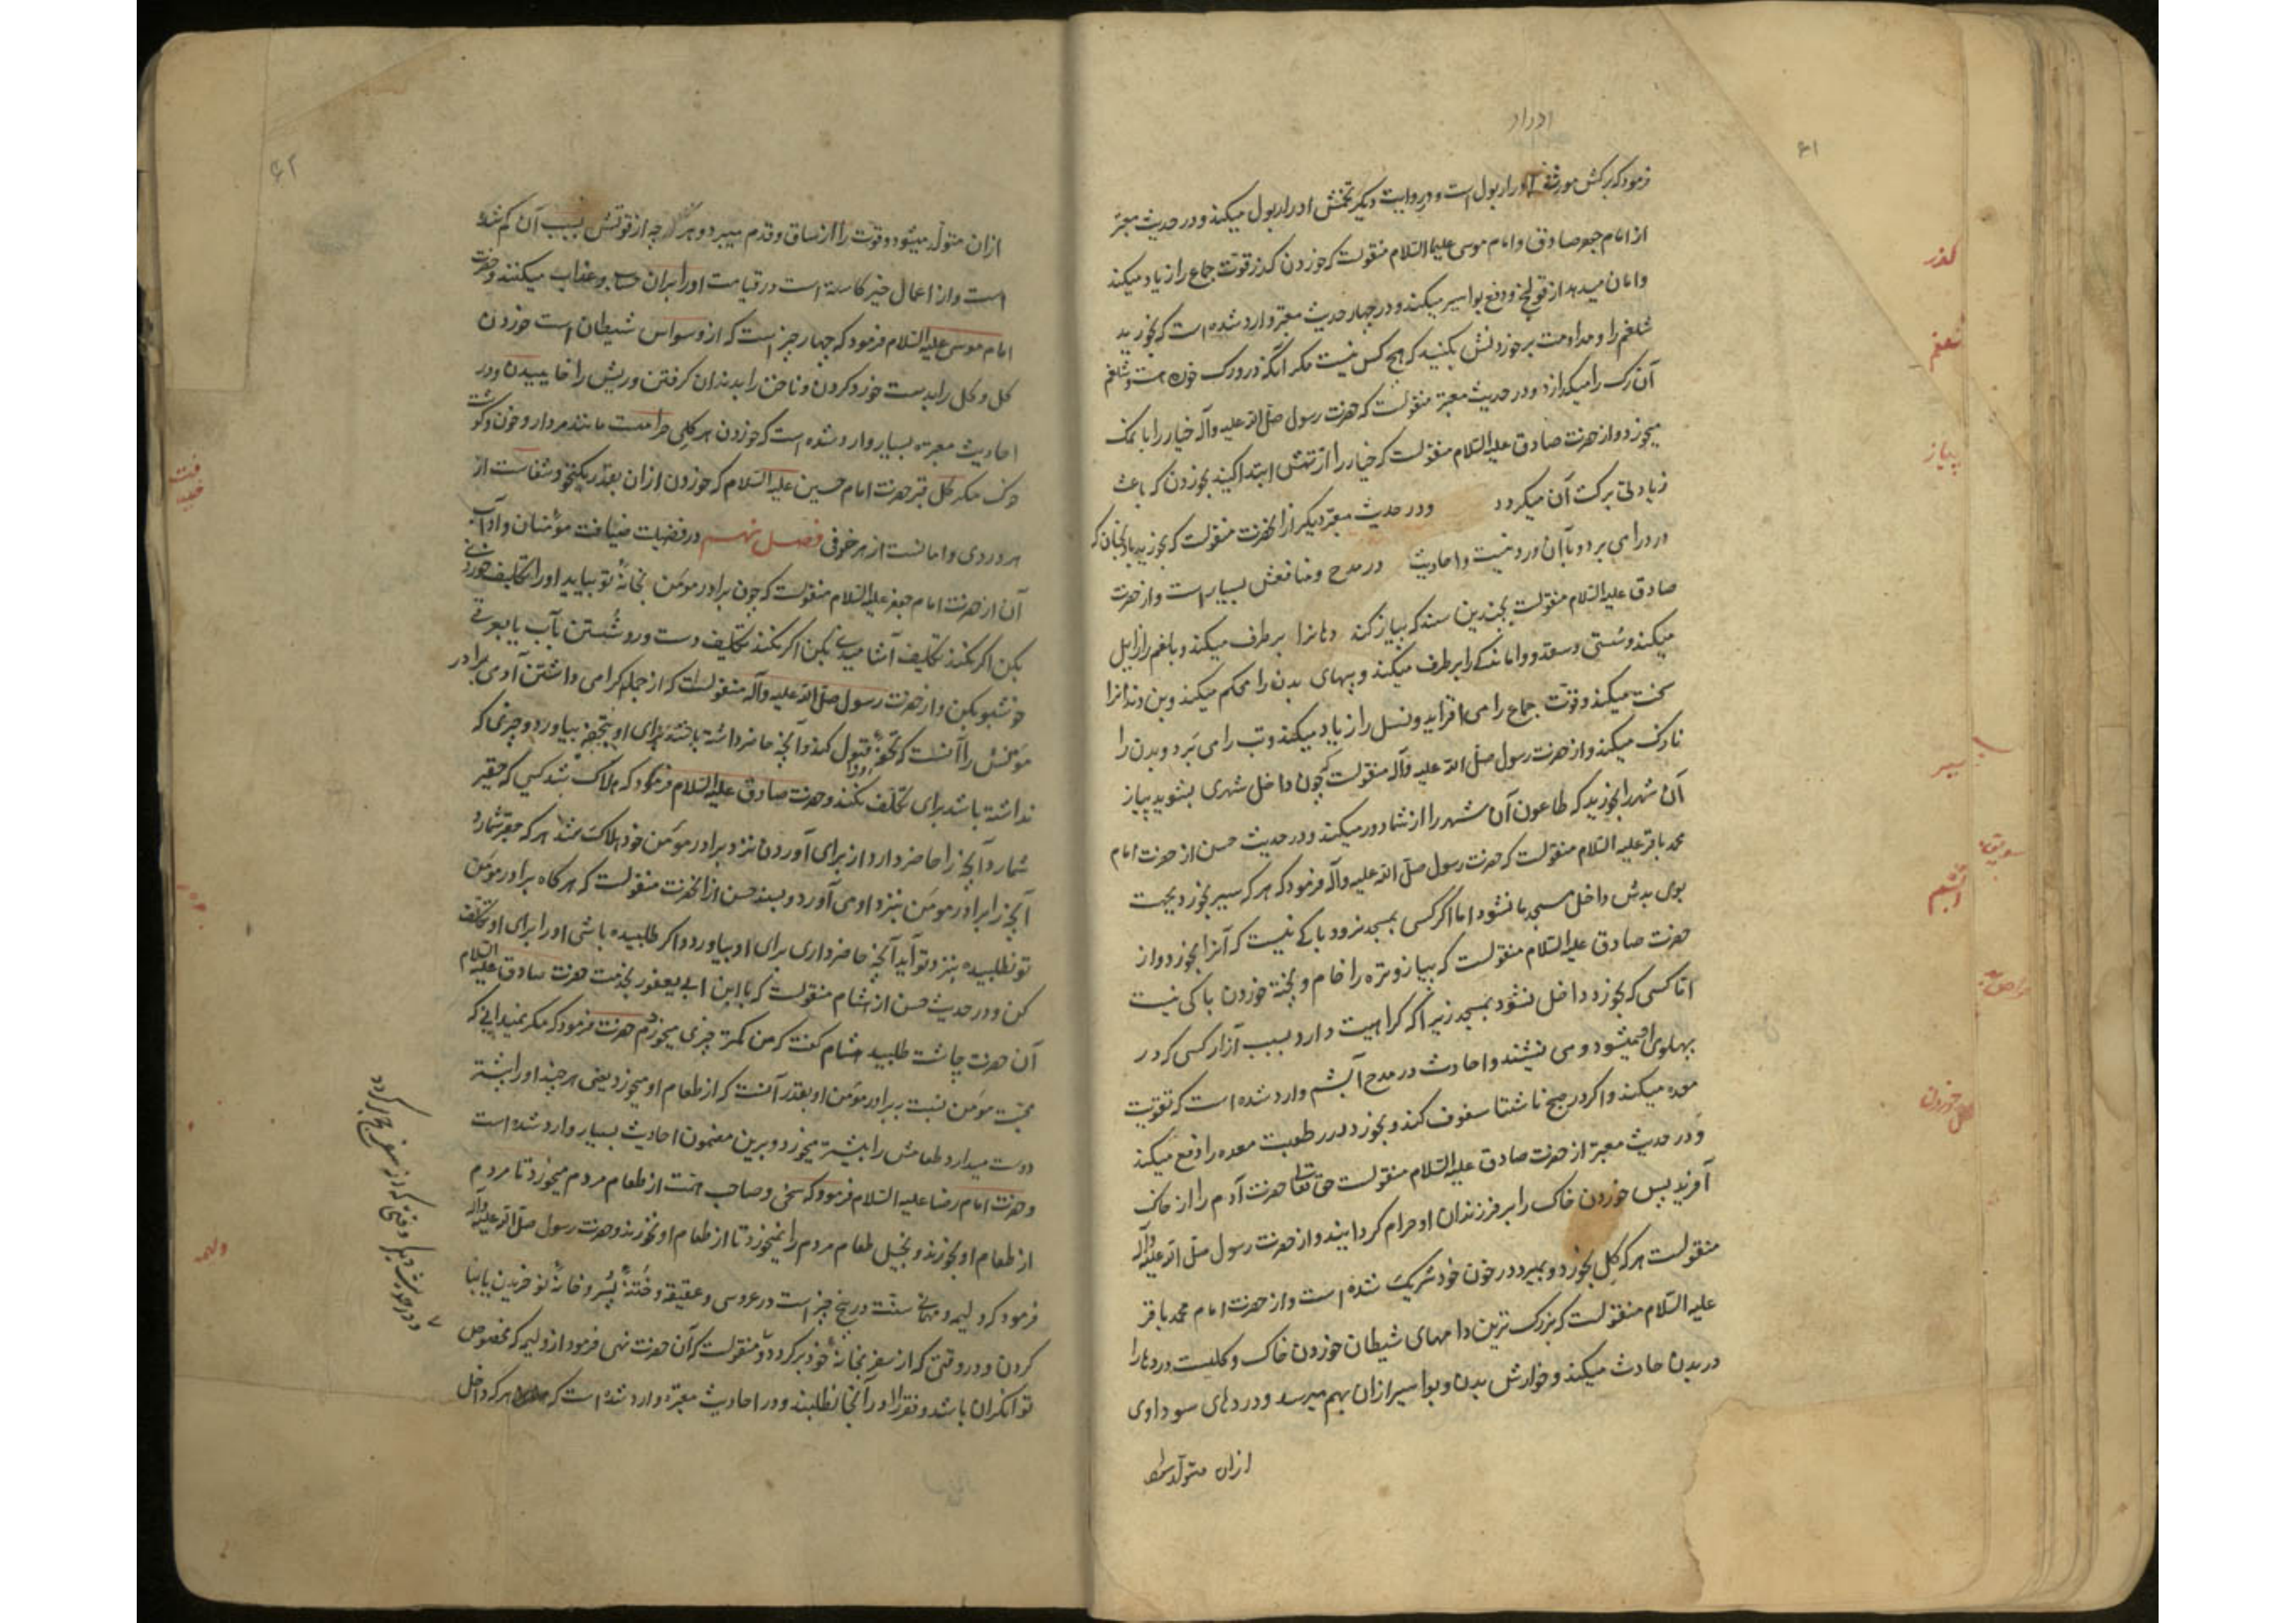 ادرار
۶۱
فرمود که برکش مورث ادرار بول است و در روایت دیگر تخمش ادرار بول میکند و در حدیث معتبر
از امام جعفر صادق و امام موسی علیهما السلام منقولست که خوردن کذر قوت جماع را زیاد میکند
و امان میدهد از قولنج و دفع بواسیر میکند و در چهار حدیث معتبر وارد شده است که بخورید
شلغم را و مداومت بر خوردنش بکنید که هیچ کس نیست مکر آنکه در و رک خوره هست و شلغم
آن رک را میکدازد و در حدیث معتبر منقولست که حضرت رسول صلی الله علیه وآله خیار را با نمک
میخورد و از حضرت صادق علیه السلام منقولست که خیار را از تهش ابتدا کنید بخوردن که باعث
زیادتی برکت آن میکردد و در حدیث معتبر دیکر از انحضرت منقولست که بخورید بادنجان که
درد را می برد و با آن درد نیست و احادیث در مدح و منافعش بسیار است و از حضرت
صادق علیه السلام منقولست بچندین سند که پیاز کند دهانرا برطرف میکند و بلغم را زایل
میکند و سستی و واماندکی را برطرف میکند و پیهای بدن را محکم میکند و بن دندانرا
سخت میکند و قوت جماع را می افزاید و نسل را زیاد میکند و تب را می برد و بدن را
نازک میکند و از حضرت رسول صلی الله علیه وآله منقولست که چون داخل شهری بشوید پیاز
آن شهر را بخورید که طاعون آن شهر را از شما دور میکند و در حدیث حسن از حضرت امام
محمد باقر علیه السلام منقولست که حضرت رسول صلی الله علیه وآله فرمود که هر که سیر بخورد بجهت
بوی بدش داخل مسجد ما نشود اما اگر کسی بمسجد نرود باکی نیست که آنرا بخورد و از
حضرت صادق علیه السلام منقولست که پیاز و تره را خام و پخته خوردن باکی نیست
اما کسی که بخورد داخل نشود بمسجد زیرا که کراهیت دارد بسبب آزار کسی که در
پهلوی او میشود و می نشیند و احادیث در مدح آبشم وارد شده است که تقویت
معده میکند و اکر در صبح ناشتا سفوف کند و بخورد رطوبت معده را دفع میکند
و در حدیث معتبر از حضرت صادق علیه السلام منقولست حق تعالی حضرت آدم را از خاک
آفرید پس خوردن خاک را بر فرزندان او حرام کردانید و از حضرت رسول صلی الله علیه وآله
منقولست هر که کل بخورد و بمیرد در خون خود شریک شده است و از حضرت امام محمد باقر
علیه السلام منقولست که بزرک ترین دامهای شیطان خوردن خاک و کلیست دردها را
در بدن حادث میکند و خوارش بدن و بواسیر ازان بهم میرسد و دردهای سوداوی
ازان متولد
کذر
شلغم
پیاز
سیر
کل خوردن
۶۲
ازان متولد میشود و قوت را از ساق و قدم میبرد و هر چه از قوتش بسبب آن کم شده
است و از اعمال خیر کاسته است در قیامت او را بران حساب و عذاب میکنند و حضرت
امام موسی علیه السلام فرمود که چهار چیز است که از وسواس شیطان است خوردن
کل و کل را بدست خورد کردن و ناخن را بدندان کرفتن و ریش را خاییدن و در
احادیث معتبره بسیار وارد شده است که خوردن هر کلی حرامست مانند مردار و خون و کوشت
خوک مکر کل قبر حضرت امام حسین علیه السلام که خوردن ازان بقدر یکنخود شفاست از
هر دردی و امانست از هر خوفی فصل نهم در فضیلت ضیافت مؤمنان و آداب
آن از حضرت امام جعفر علیه السلام منقولست که چون برادر مومن بخانه تو بیاید او را تکلیف خوردنی
بکن اکر نکند تکلیف آشامیدنی بکن اکر نکند تکلیف دست و رو شستن بآب یا ببوی
خوشبو بکن و از حضرت رسول صلی الله علیه وآله منقولست که از جمله کرامی داشتن آدمی برادر
مومنش را آنست که تحفه او را قبول کند و آنچه حاضر داشته باشد برای او بتحفه بیاورد و چیزی که
نداشته باشد برای تکلف نکند و حضرت صادق علیه السلام فرمود که هلاک شد کسی که حقیر
شمارد آنچه را حاضر دارد از برای آوردن نزد برادر مومن خود هلاک شد هر که حقیر شمارد
آنچه را برادر مومن بنزد او می آورد و بسند حسن از انحضرت منقولست که هر گاه برادر مومن
تو نطلبیده بنزد تو آید آنچه حاضر داری برای او بیاور و اکر طلبیده باشی او را برای او تکلف
کن و در حدیث حسن از هشام منقولست که با ابن ابی یعفور بخدمت حضرت صادق علیه السلام
آن حضرت چاشت طلبید هشام کفت که من کمتر چیزی میخورم حضرت فرمود که مکر نمیدانی که
محبت مومن نسبت ببرادر مومن او بقدر آنست که از طعام او میخورد یعنی هر چند او را بیشتر
دوست میدارد طعامش را بیشتر میخورد و برین مضمون احادیث بسیار وارد شده است
و حضرت امام رضا علیه السلام فرمود که سخی و صاحب همت از طعام مردم میخورد تا مردم
از طعام او بخورند و بخیل طعام مردم را نمیخورد تا از طعام او نخورند و حضرت رسول صلی الله علیه وآله
فرمود که ولیمه و مهمانی سنت در پنج چیز است در عروسی و عقیقه و ختنه پسر و خانه نو خریدن یا بنا
کردن و در وقتی که از سفر بخانه خود برکردد و منقولست که آن حضرت نهی فرمود از ولیمه که مخصوص
توانکران باشد و فقرا را در آنجا نطلبند و در احادیث معتبره وارد شده است که هر که داخل
ولیمه